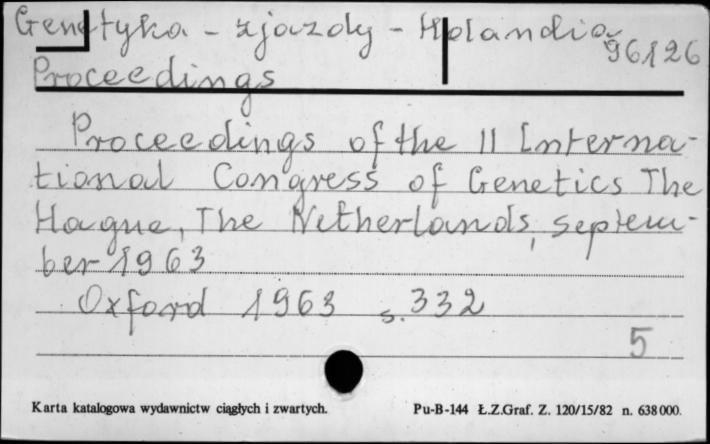 Genetyka - zjazdy - Holandia
96126
Proceedings
Proceedings of the 11 Interna-
tional Congress of Genetics The
Hague, The Netherlands, septem-
ber 1963
Oxford 1963 s. 332
5
Karta katalogowa wydawnictw ciągłych i zwartych. Pu-B-144 Ł.Z.Graf. Z. 120/15/82 n. 638000.